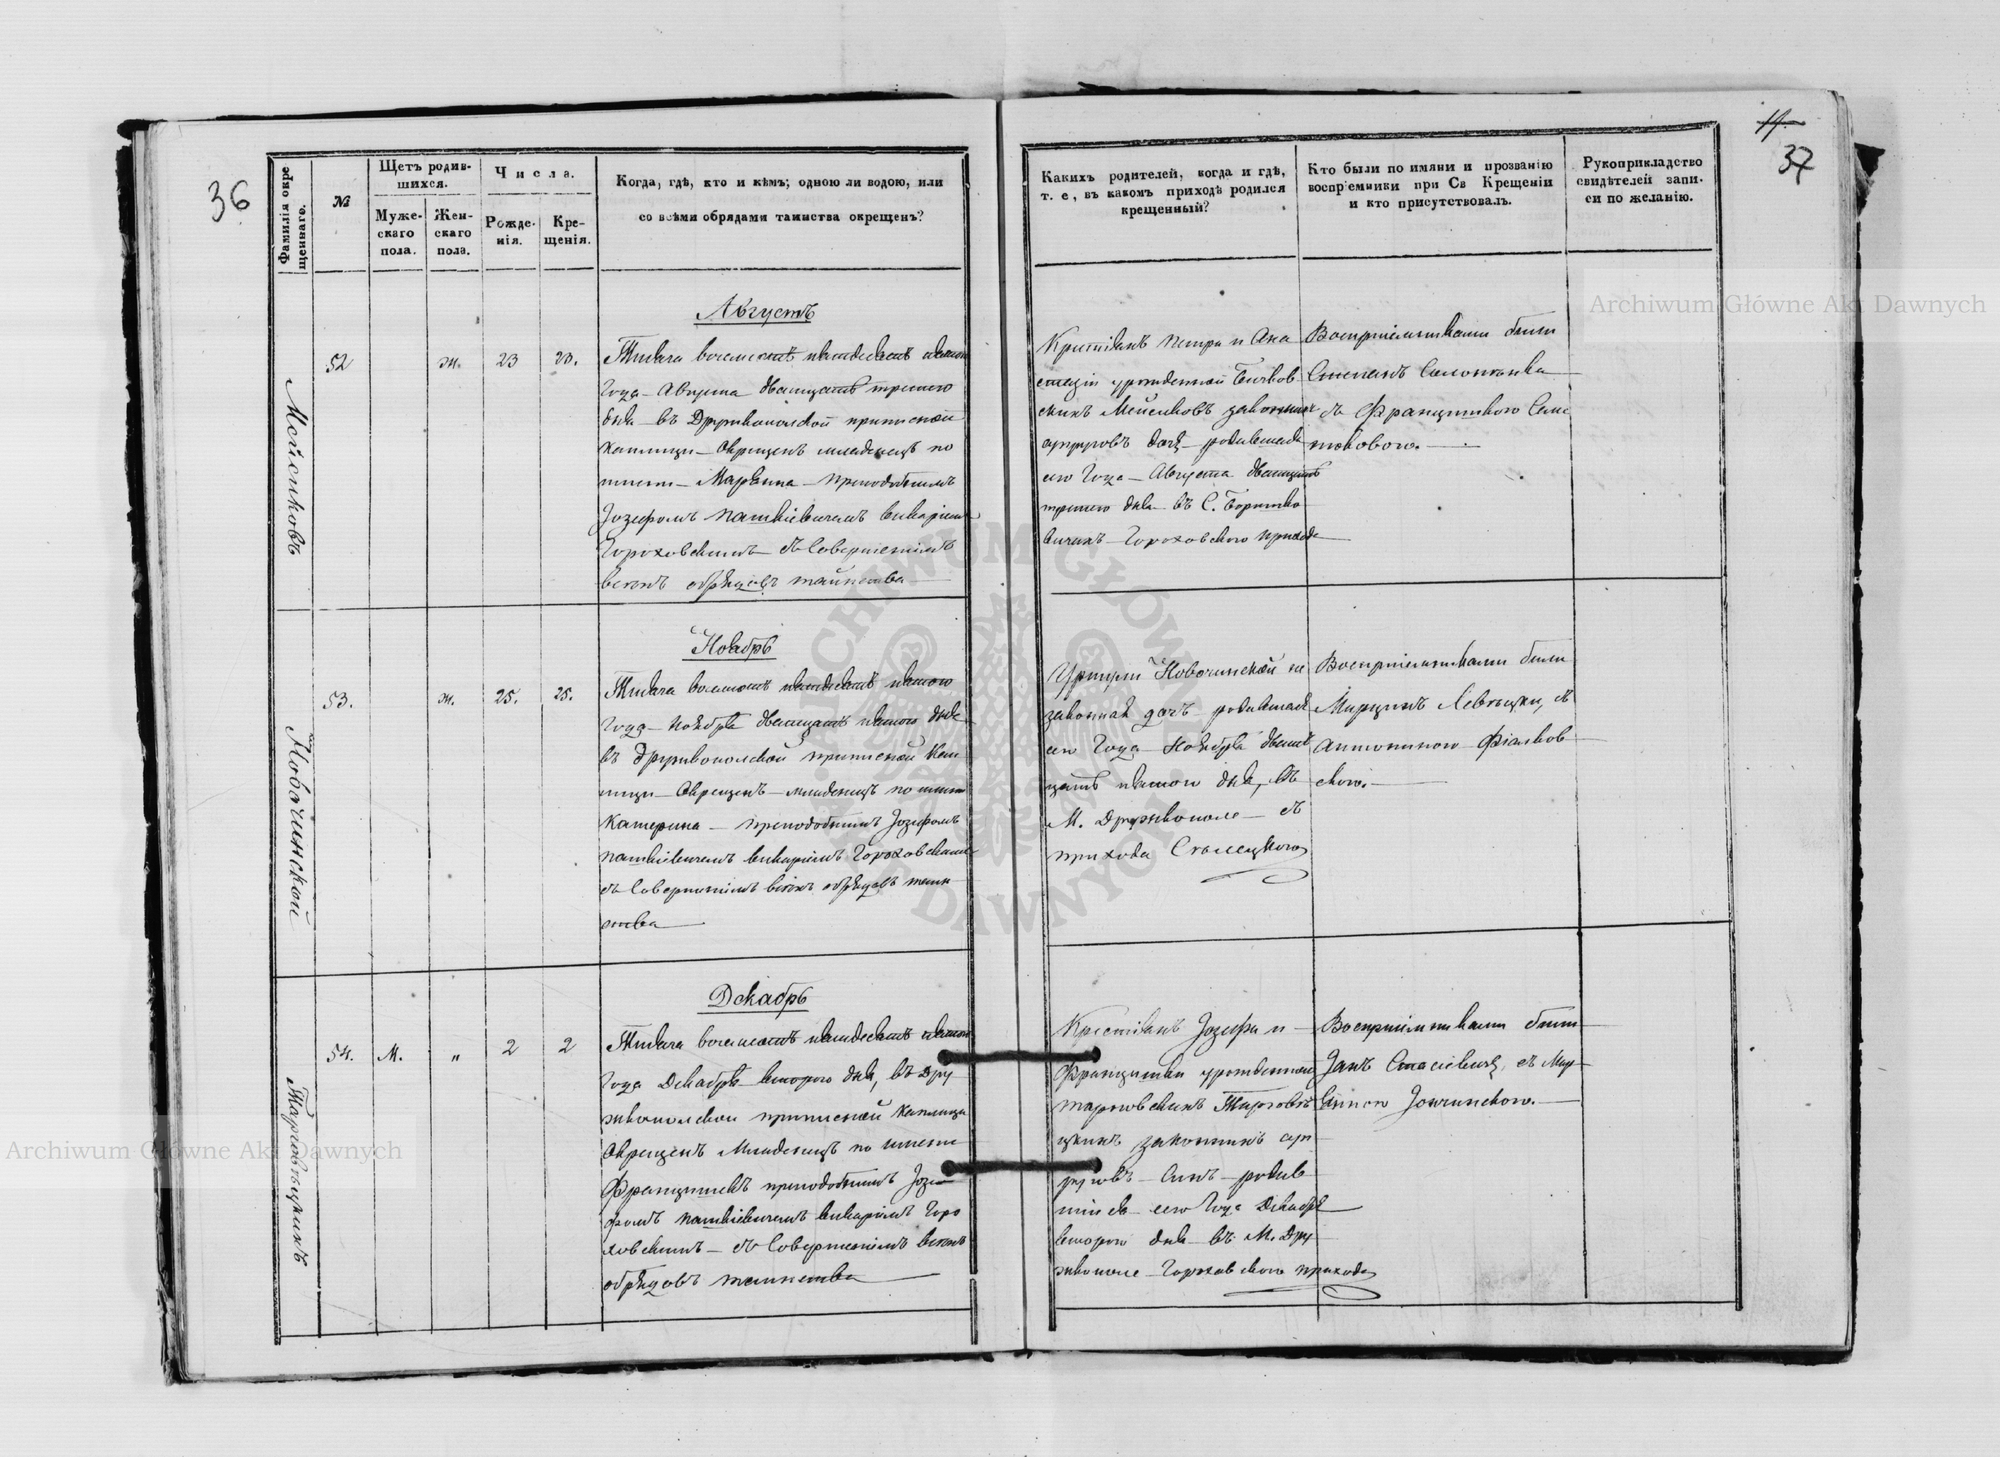 36
Фамилія окре
щеннаго.
№
Щетъ родив-
шихся.
Муже-
скаго
пола.
Жен-
скаго
пола.
Числа.
Рожде-
нія.
Кре-
щенія.
Когда, гдѣ, кто и кѣмъ; одною ли водою, или
со всѣми обрядами таинства окрещенъ?
Мойсиковъ
52
ж.
23
23.
Августъ
Тысяча восемьсотъ пятьдесятъ пятого
года Августа двадцать третьего
дня въ Друживопольской приписной
каплицы Окрещенъ младенецъ по
имени Маріанна преподобнымъ
Іозефомъ Пашкіевичемъ викаріемъ
Гороховскимъ съ Совершеніемъ
всѣхъ обрядовъ тайнства
Новочинской
53.
ж.
25.
25.
Ноябрь
Тысяча восемьсотъ пятьдесятъ пятого
года Ноября двадцать пятого дня
въ Друживопольской приписной кап
лицы Окрещенъ младенецъ по имени
Катерина преподобнымъ Іозефомъ
Пашкіевичемъ викаріемъ Гороховскимъ
съ Совершеніемъ всѣхъ обрядовъ таин
ства
Тарговицкихъ
54.
М.
"
2
2
Декабрь
Тысяча восемьсотъ пятьдесятъ пятого
года Декабря второго дня, въ Дру
живопольской приписной каплицы
Окрещенъ Младенецъ по имени
Францишекъ преподобнымъ Іозе
фомъ Пашкіевичемъ викаріемъ Горо
ховскимъ съ Совершеніемъ всѣхъ
обрядовъ таинства
14.
37
Какихъ родителей, когда и гдѣ,
т. е, въ какомъ приходѣ родился
крещенный?
Кто были по имяни и прозванію
воспріемники при Св Крещеніи
и кто присутствовалъ.
Рукоприкладство
свидѣтелей запи-
си по желанію.
Крестіянъ Петра и Ана
стазіи урожденной
Мойсиковъ законныхъ
супруговъ дочь родившаяся
сего Года Августа двадцать
третьего дня въ С.
Гороховского прихода
Воспріемниками были
Степанъ
съ Францишкою
Уршули Новочинской не
законная дочь родившаяся
сего Года Ноября двад
цать пятого дня, въ
М. Друживополе съ
прихода
Воспріемниками были
Марцинъ Левицки, съ
Антониною Фіялков
ского.
Крестіянъ Іозефа и
Францишки урожденной
Таргови
цкихъ законныхъ суп
руговъ Сынъ родив
шійся сего Года Декабря
второго дня въ М. Дру
живополе Гороховского прихода
Воспріемниками были
Янъ Стасіевичъ, съ Мар
Archiwum Główne Akt Dawnych
Archiwum Główne Akt Dawnych
ARCHIWUM GŁÓWNE AKT DAWNYCH